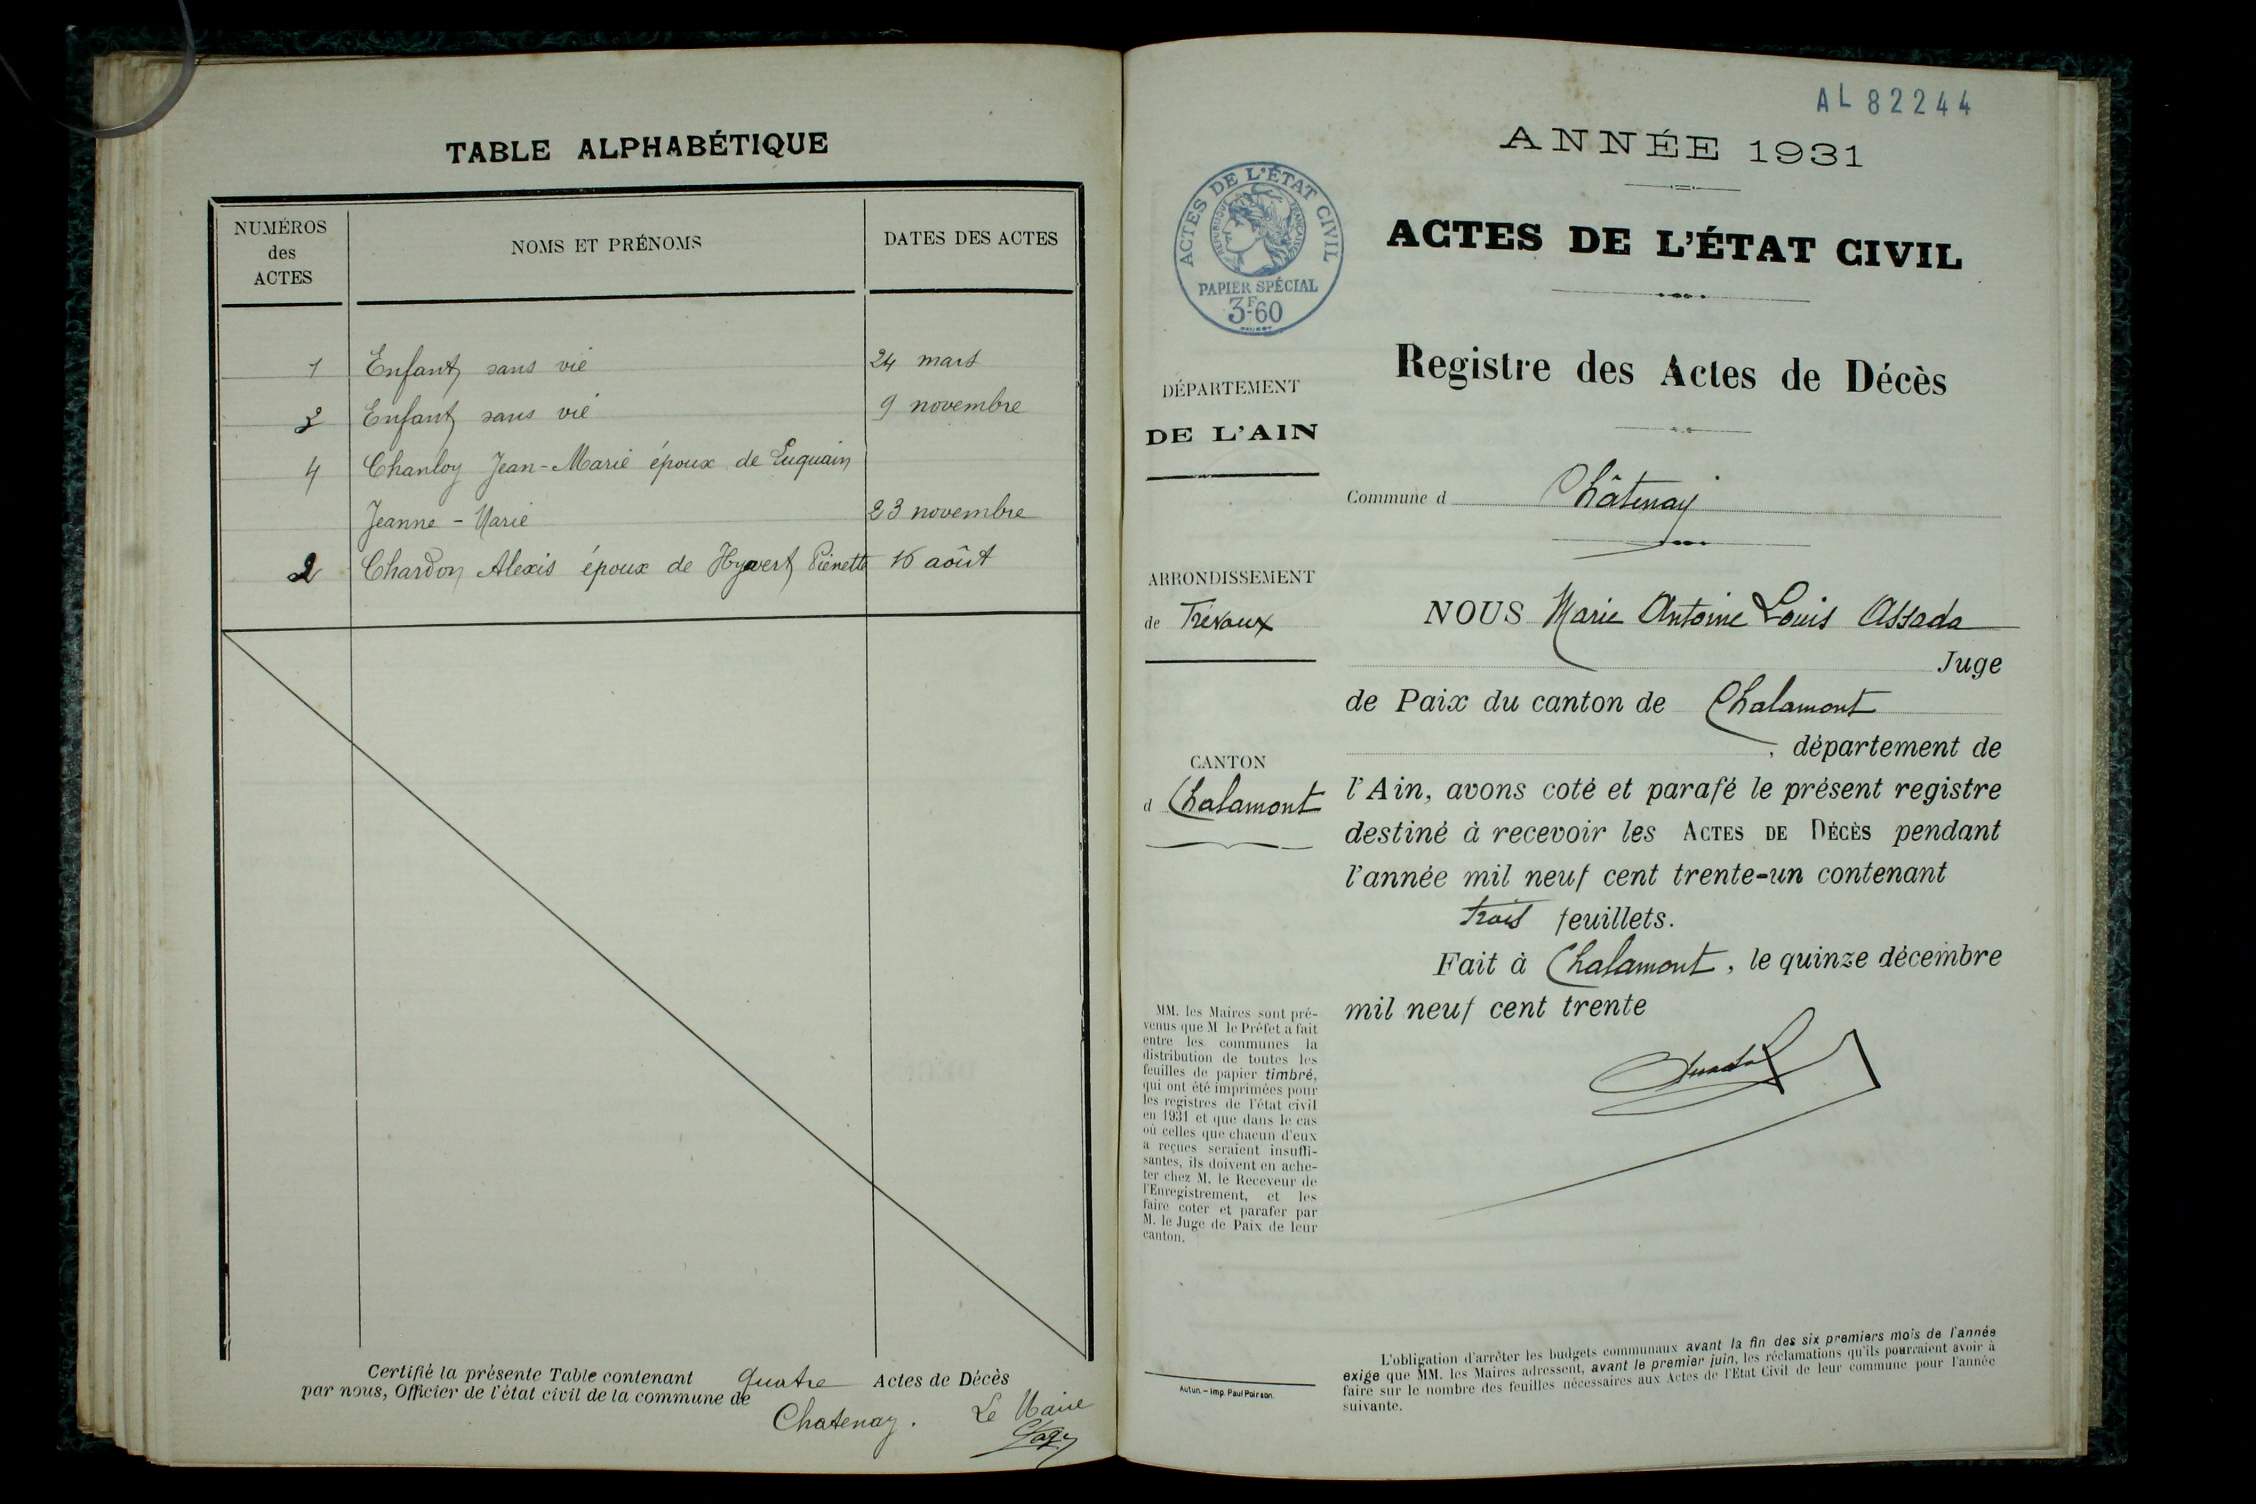 TABLE ALPHABÉTIQUE
NUMÉROS
des
ACTES
NOMS ET PRÉNOMS
DATES DES ACTES
1 Enfant sans vie 24 mars
3 Enfant sans vie 9 novembre
4 Chanloy Jean-Marie époux de Luquain
Jeanne-Marie 23 novembre
2 Chardon Alexis époux de Hyvert Pienette 16 août
Certifié la présente Table contenant quatre Actes de Décès
par nous, Officier de l'état civil de la commune de
Chatenay. Le Maire
AL 82244
ANNÉE 1931
ACTES DE L'ÉTAT CIVIL
RÉPUBLIQUE FRANÇAISE
PAPIER SPÉCIAL
3F.60
ACTES DE L'ÉTAT CIVIL
Registre des Actes de Décès
DÉPARTEMENT
DE L'AIN
Commune d Châtenay
ARRONDISSEMENT
de Trévoux
CANTON
d Chalamont
NOUS Marie Antoine Louis Assada
Juge
de Paix du canton de Chalamont
, département de
l'Ain, avons coté et parafé le présent registre
destiné à recevoir les ACTES DE DÉCÈS pendant
l'année mil neuf cent trente-un contenant
trois feuillets.
Fait à Chalamont, le quinze décembre
mil neuf cent trente
MM. les Maires sont pré-
venus que M le Préfet a fait
entre les communes la
distribution de toutes les
feuilles de papier timbré,
qui ont été imprimées pour
les registres de l'état civil
en 1931 et que dans le cas
où celles que chacun d'eux
a reçues seraient insuffi-
santes, ils doivent en ache-
ter chez M. le Receveur de
l'Enregistrement, et les
faire coter et parafer par
M. le Juge de Paix de leur
canton.
Autun. – Imp. Paul Poirson.
L'obligation d'arrêter les budgets communaux avant la fin des six premiers mois de l'année
exige que MM. les Maires adressent, avant le premier juin, les réclamations qu'ils pourraient avoir à
faire sur le nombre des feuilles nécessaires aux Actes de l'État Civil de leur commune pour l'année
suivante.